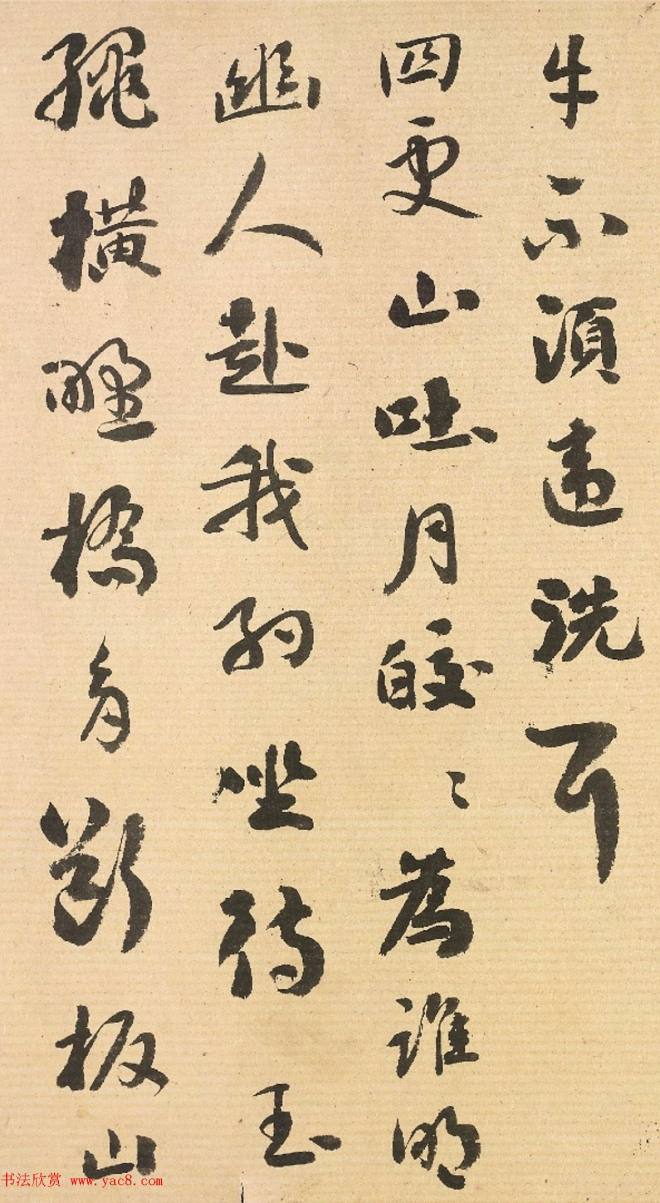 牛不須違洗耳
四更山吐月皎々為誰明
幽人赴我約坐待玉
繩橫野橋多斷板山
书法欣赏 www.yac8.com